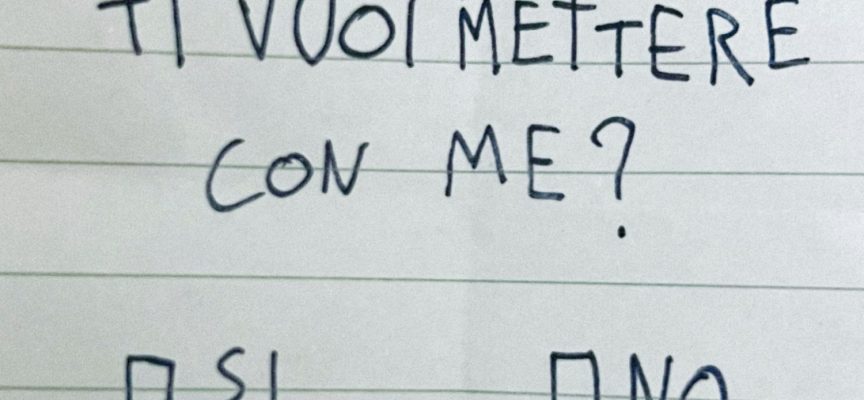 TI VUOI METTERE
CON ME?
SI NO